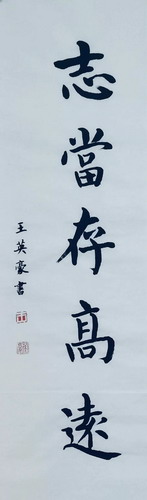 志當存高遠
王英豪書